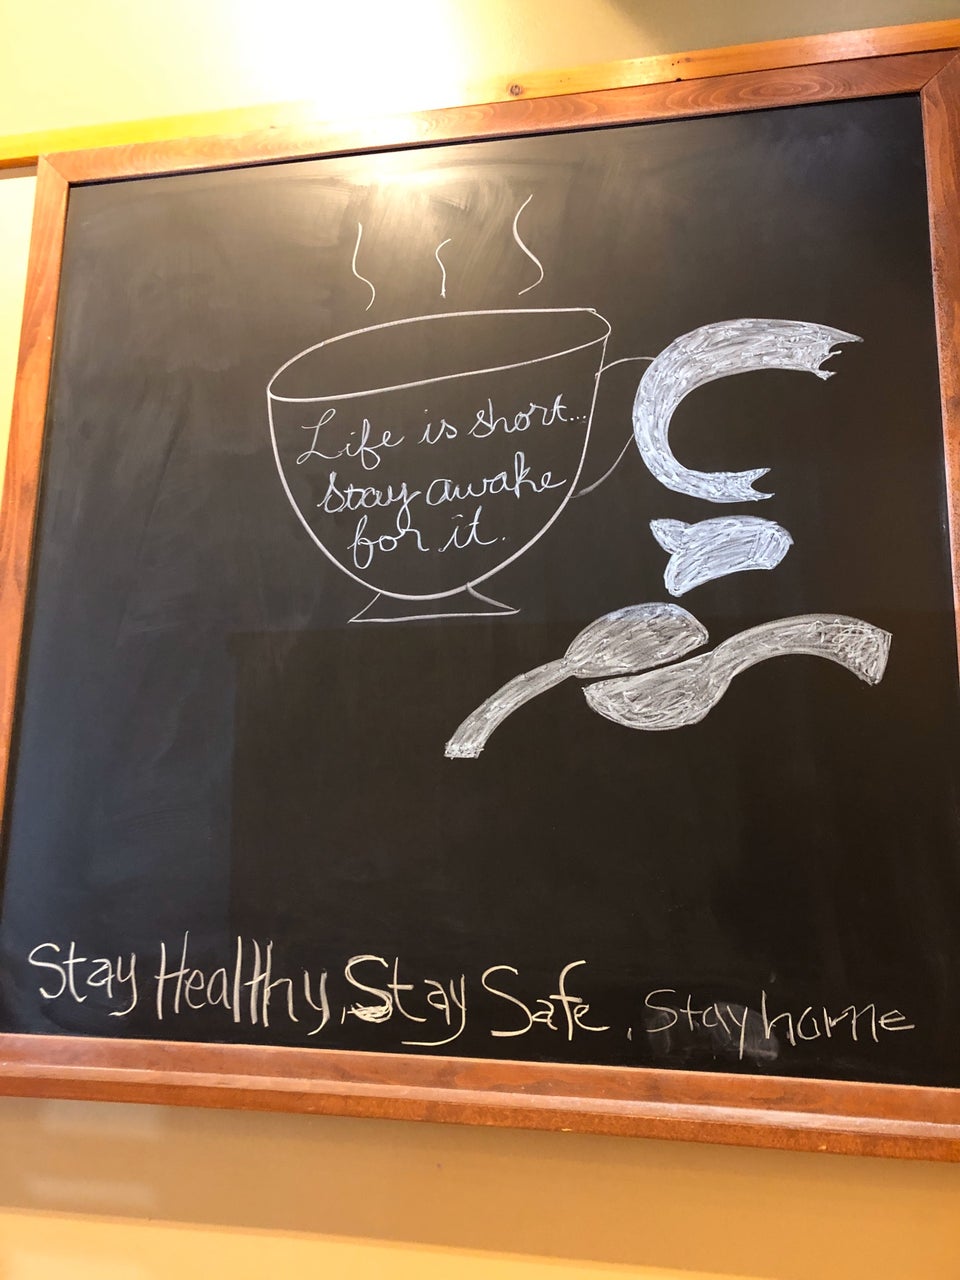 Life is short...
stay awake
for it.
Stay Healthy, Stay Safe, Stay home